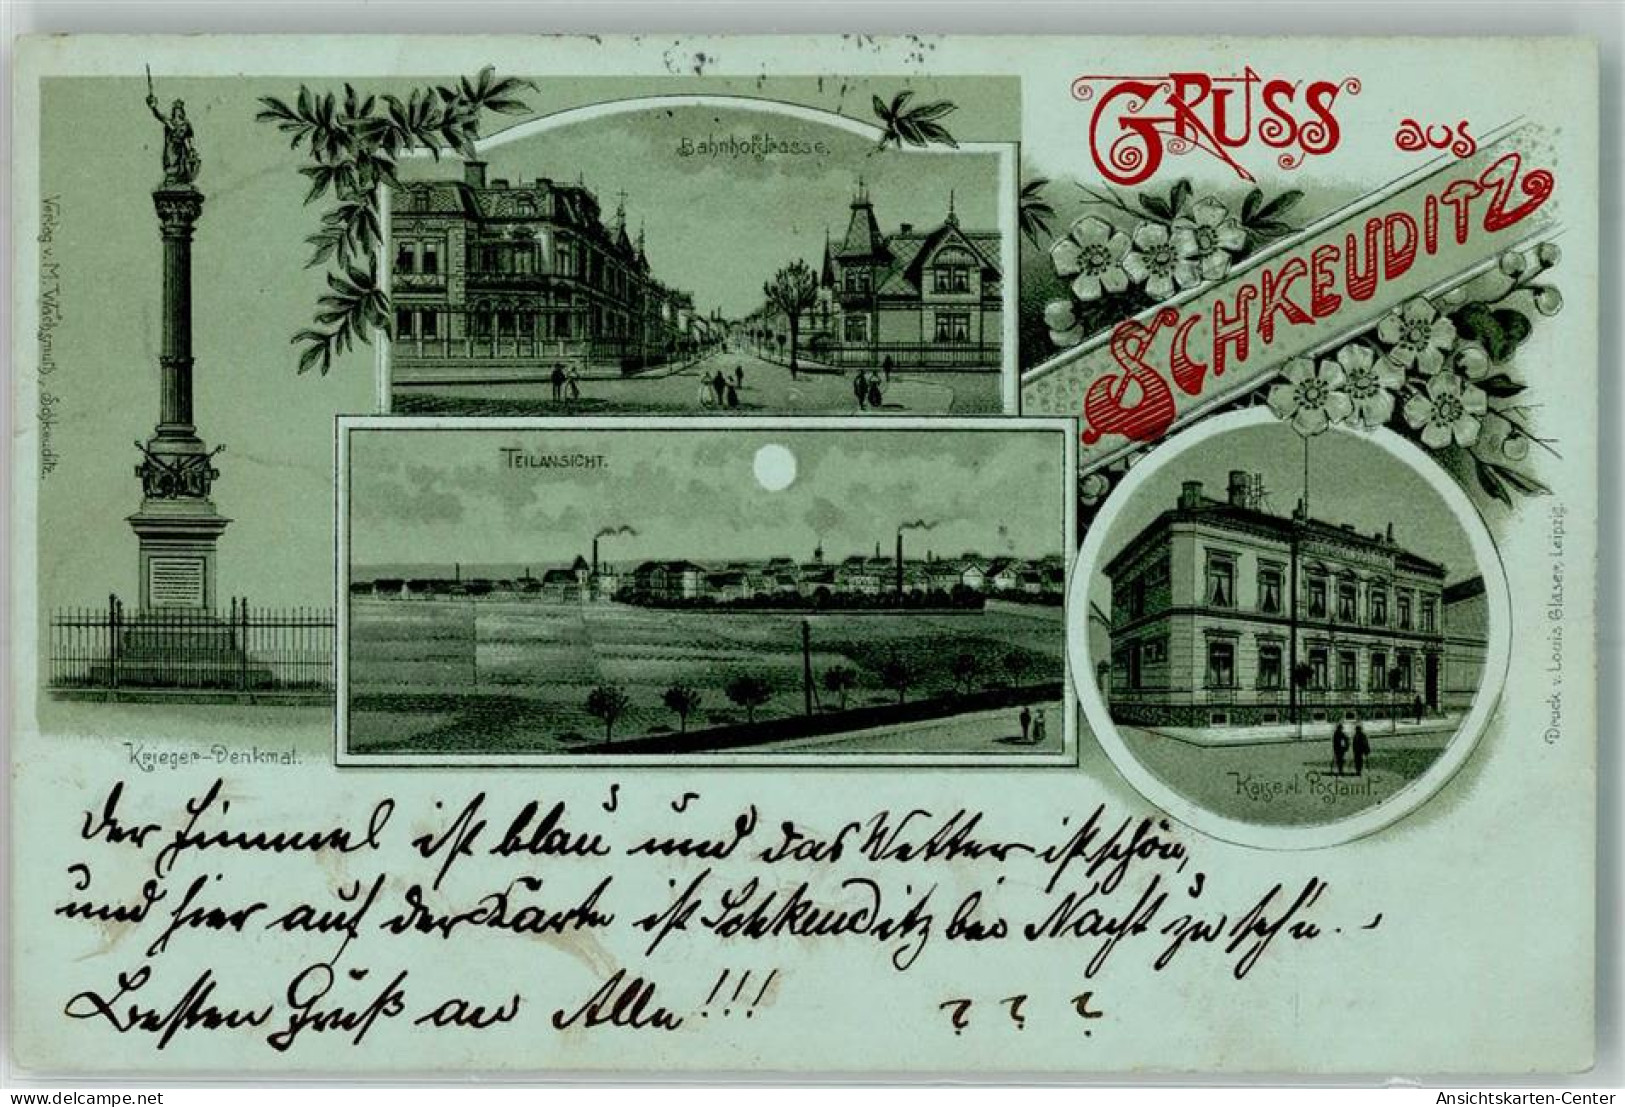 GRUSS aus
SCHKEUDITZ
Bahnhofstrasse.
TEILANSICHT.
Krieger-Denkmal.
Kaiserl. Postamt.
Verlag v. M. Wachsmuth, Schkeuditz.
Druck v. Louis Glaser, Leipzig.
Der Himmel ist blau und das Wetter ist schön,
und hier auf der Karte ist Schkeuditz bei Nacht zu seh'n.
Besten Gruß an Alle!!! ? ? ?
oldthing.de
Ansichtskarten-Center